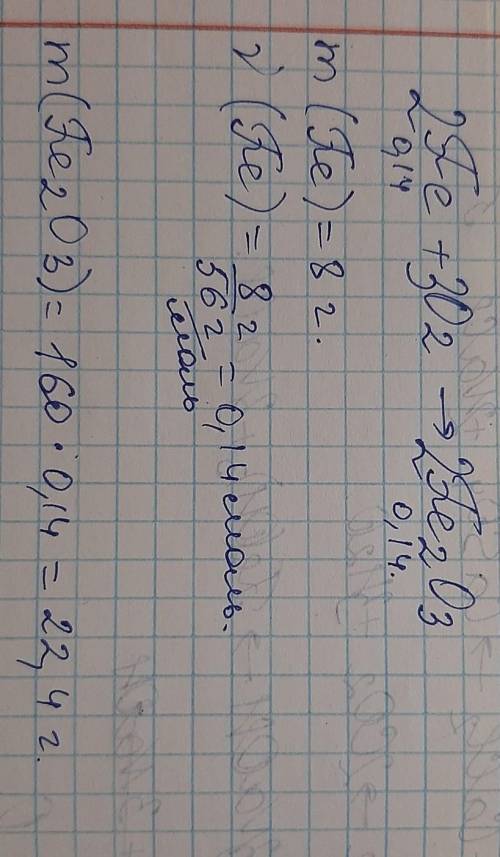 2Fe + 3O2 → 2Fe2O3
0,14 0,14.
m(Fe) = 8 г.
ν(Fe) = 8 г / 56 г/моль = 0,14 моль.
m(Fe2O3) = 160 · 0,14 = 22,4 г.